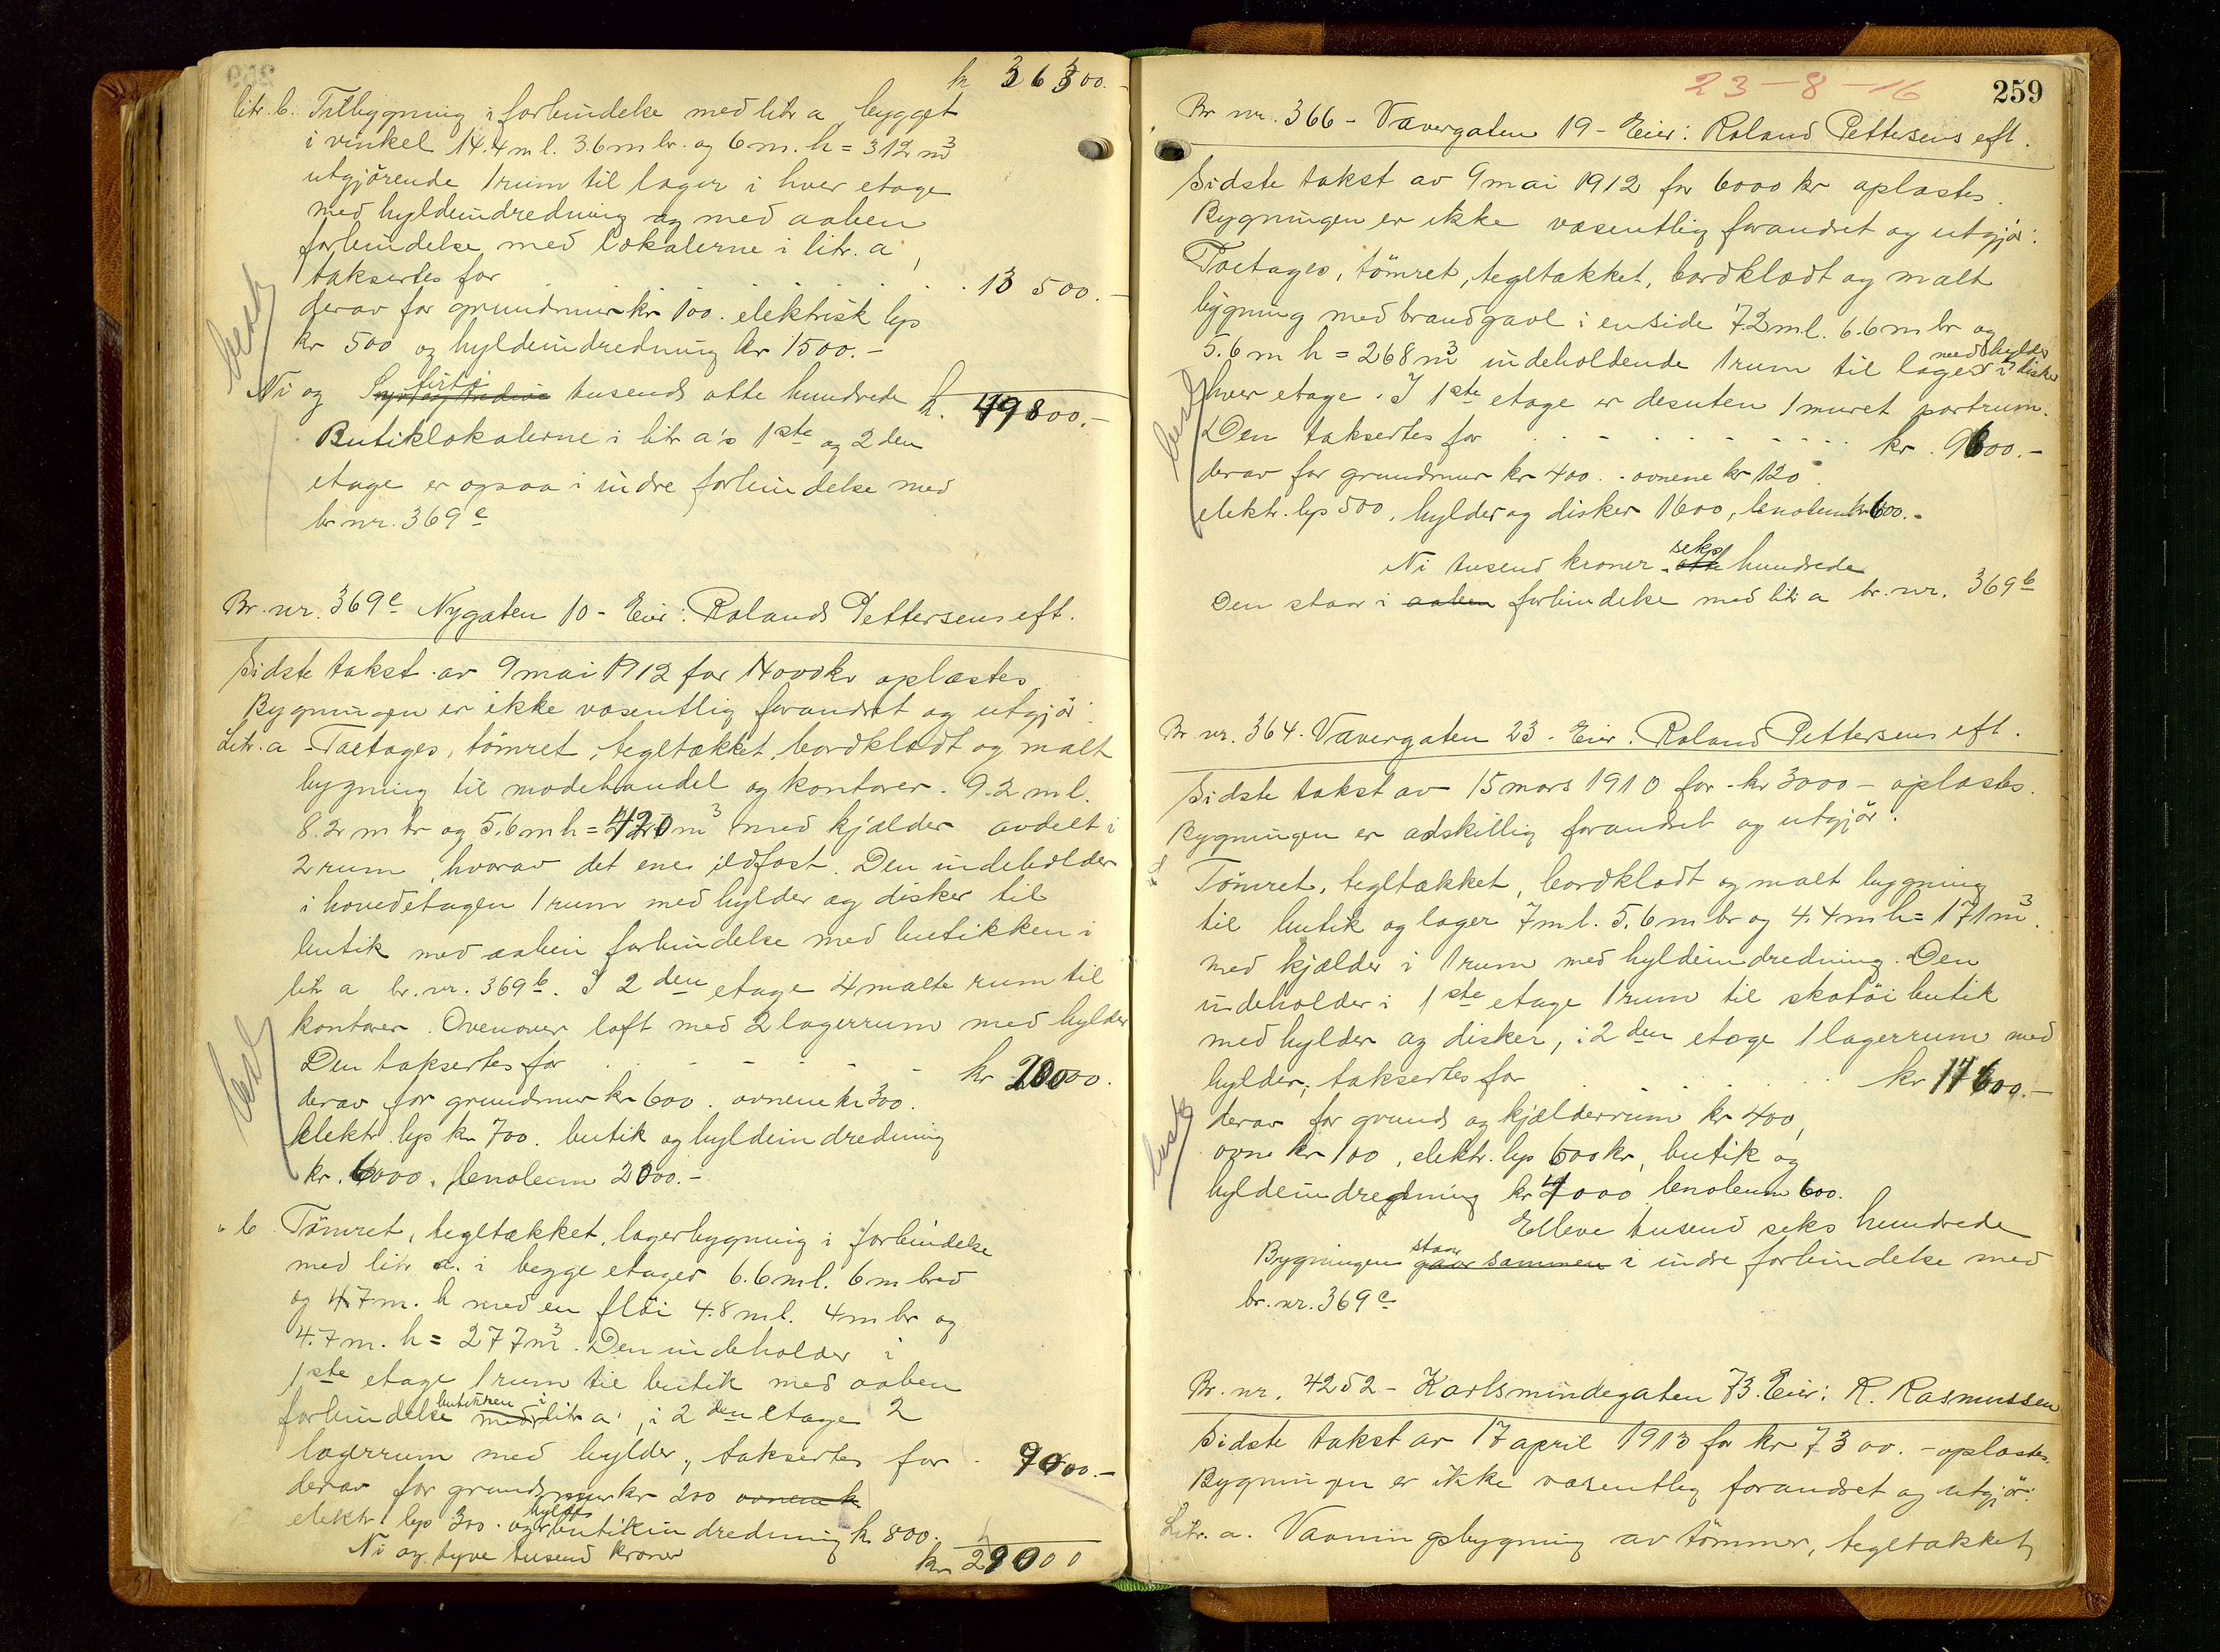 kr 36300.-
litr. b. Tilbygning i forbindelse med litr a bygget
i vinkel 14.4 m l. 3.6 m br. og 6 m. h = 312 m³
utgjörende 1 rum til lager i hver etage
med hyldeindredning og med aaben
forbindelse med lokalerne i litr. a,
taksertes for . . . . . . 13 500.-
derav for grundmur kr 100. elektrisk lys
kr 500 og hyldeindredning kr 1500.-
Ni og firti tusend otte hundrede kr. 49800.-
Butiklokalerne i litr a's 1ste og 2den
etage er ogsaa i indre forbindelse med
br nr. 369c
Br. nr. 369c Nygaten 10 - Eier: Rolands Pettersens eft.
Sidste takst av 9 mai 1912 for 14000 kr oplæstes
Bygningen er ikke væsentlig forandret og utgjör:
Litr. a - Toetages, tömret, tegltækket, bordklædt og malt
bygning til modehandel og kontorer. 9.2 m l.
8.2 m br og 5.6 m h = 420 m³ med kjælder avdelt i
2 rum, hvorav det ene ildfast. Den indeholder
i hovedetagen 1 rum med hylder og disker til
butik med aaben forbindelse med butikken i
litr a br. nr. 369b. I 2den etage 4 malte rum til
kontorer. Ovenover loft med 2 lagerrum med hylder
Den taksertes for . - - - - kr 20000.
derav for grundmur kr 600. ovnene kr 300.
elektr. lys kr 700. butik og hyldeindredning
kr. 6000, lenoleum 2000.-
" b. Tömret, tegltækket, lagerbygning i forbindelse
med litr a. i begge etager 6.6 m l. 6 m bred
og 4.7 m. h med en flöi 4.8 m l. 4 m br og
4.7 m. h = 277 m³. Den indeholder i
1ste etage 1 rum til butik med aaben
forbindelse med butikken i litr a, i 2den etage 2
lagerrum med hylder, taksertes for . 9000.-
derav for grundmur kr 200 ovnene kr
elektr. lys 300. og hylde butikindredning kr 800.
Ni og tyve tusend kroner kr 29000
23-8-16
259
Br nr. 366 - Vævergaten 19 - Eier: Roland Pettersens eft.
Sidste takst av 9 mai 1912 for 6000 kr oplæstes.
Bygningen er ikke væsentlig forandret og utgjör:
Toetages, tömret, tegltækket, bordklædt og malt
bygning med brandgavl i en side 7.2 m l. 6.6 m br og
5.6 m h = 268 m³ indeholdende 1 rum til lager med hylder disker i
hver etage. I 1ste etage er desuten 1 muret portrum.
Den taksertes for . . - . . . . . kr. 9600.-
derav for grundmur kr 400. - ovnene kr 120.
elektr. lys 500, hylder og disker 1600, lenoleum kr 600.-
Ni tusend kroner otte seks hundrede
Den staar i aaben forbindelse med litr a br. nr. 369b
Br nr. 364. Vævergaten 23 - Eier. Roland Pettersens eft.
Sidste takst av 15 mars 1910 for - kr 3000 - oplæstes.
Bygningen er adskillig forandret og utgjör:
Tömret, tegltækket, bordklædt og malt bygning
til butik og lager 7 m l. 5.6 m br og 4.4 m h = 171 m³.
med kjælder i 1 rum med hyldeindredning. Den
indeholder i 1ste etage 1 rum til skotöi butik
med hylder og disker, i 2den etage 1 lagerrum med
hylder, taksertes for . . . . . kr 11600.-
derav for grund og kjælderrum kr 400,
ovne kr 100, elektr. lys 600 kr, butik og
hyldeindredning kr 4000 lenoleum 600.
Elleve tusend seks hundrede
Bygningen gaar sammen staar i indre forbindelse med
br. nr. 369c
Br. nr. 4252 - Karlsmindegaten 73. Eier: R. Rasmussen
Sidste takst av 17 april 1913 for kr 7300.- oplæstes.
Bygningen er ikke væsentlig forandret og utgjör:
Litr. a. Vaaningsbygning av tömmer, tegltækket,